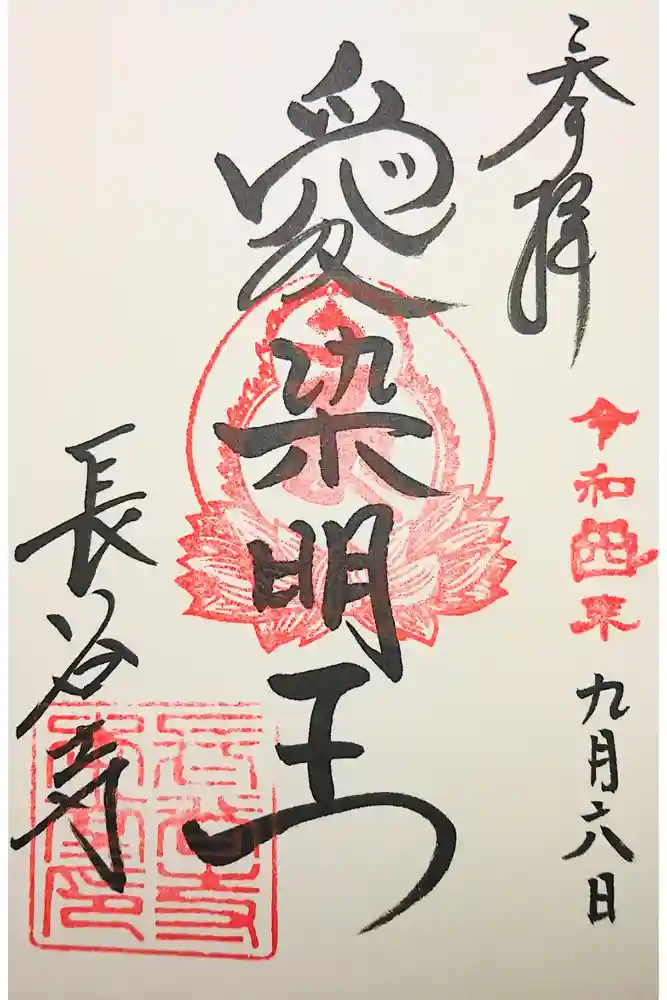 参拝
令和四年
九月六日
愛染明王
長谷寺